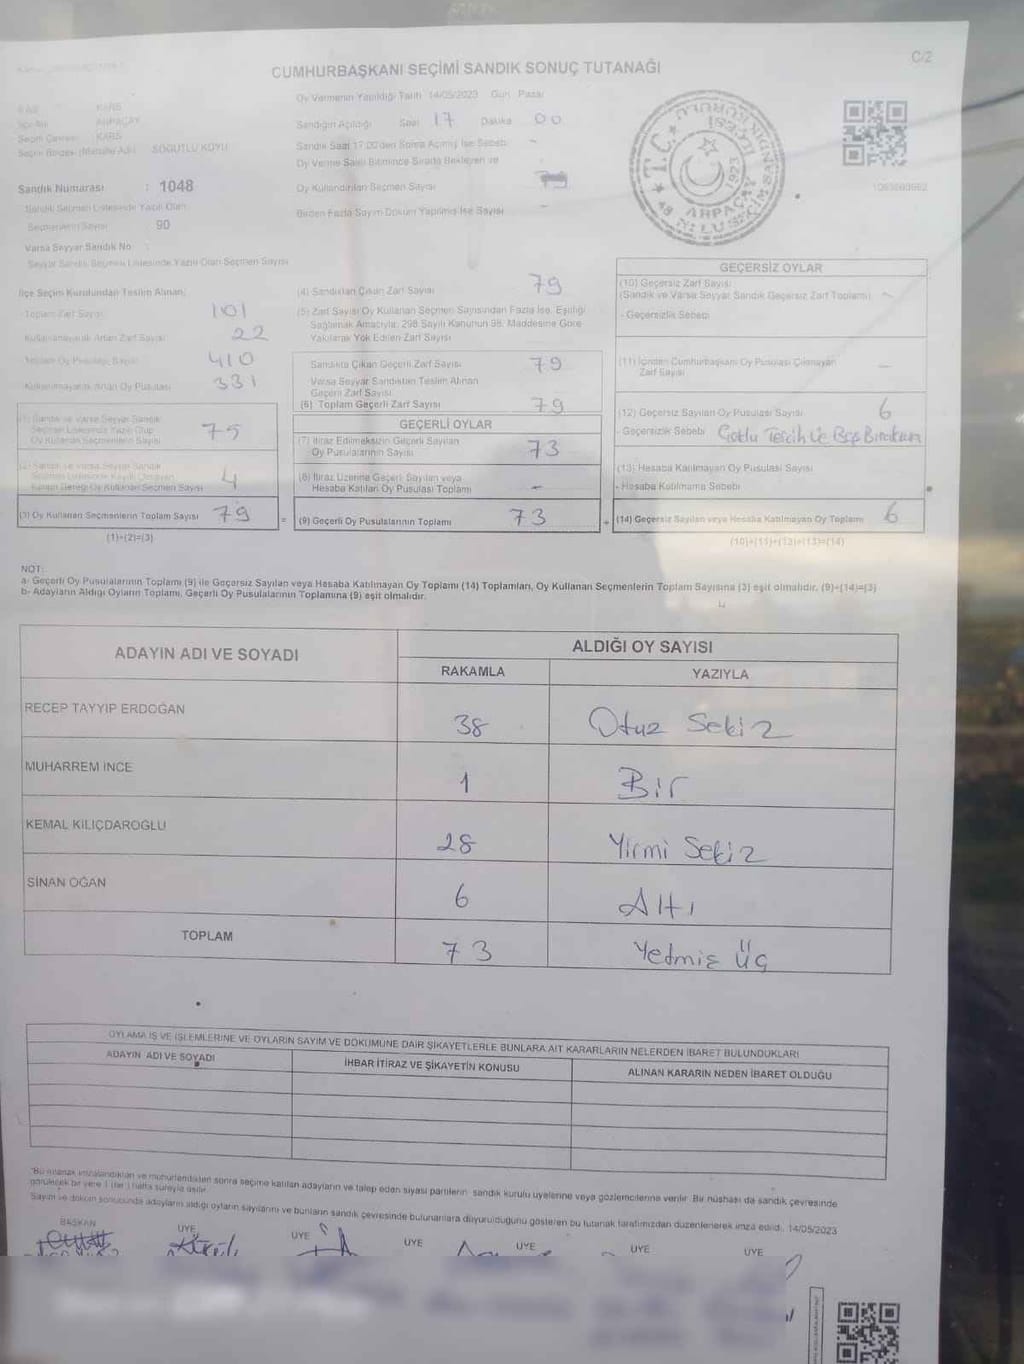 C/2
CUMHURBAŞKANI SEÇİMİ SANDIK SONUÇ TUTANAĞI
Oy Vermenin Yapıldığı Tarih 14/05/2023 Gün Pazar
KARS
ARPAÇAY
Seçim Çevresi KARS
SÖĞÜTLÜ KÖYÜ
Sandığın Açıldığı Saat 17 Dakika 00
Sandık Saat 17:00'den Sonra Açılmış İse Sebebi -
Oy Verme Saati Bitiminde Sırada Bekleyen ve
Oy Kullandırılan Seçmen Sayısı
Birden Fazla Sayım Döküm Yapılmış İse Sayısı -
T.C.
1923
ARPAÇAY
Sandık Numarası : 1048
Sandık Seçmen Listesinde Yazılı Olan
Seçmenlerin Sayısı 90
Varsa Seyyar Sandık No :
Seyyar Sandık Seçmen Listesinde Yazılı Olan Seçmen Sayısı
İlçe Seçim Kurulundan Teslim Alınan;
- Toplam Zarf Sayısı 101
Kullanılmayarak Artan Zarf Sayısı 22
- Toplam Oy Pusulası Sayısı 410
Kullanılmayarak Artan Oy Pusulası 331
(1) Sandık ve Varsa Seyyar Sandık
Seçmen Listesinde Yazılı Olup
Oy Kullanan Seçmenlerin Sayısı 75
(2) Sandık ve Varsa Seyyar Sandık
Oy Kullanan Seçmen Sayısı 4
(3) Oy Kullanan Seçmenlerin Toplam Sayısı 79
(1)+(2)=(3)
(4) Sandıktan Çıkan Zarf Sayısı 79
(5) Zarf Sayısı Oy Kullanan Seçmen Sayısından Fazla İse, Eşitliği
Sağlamak Amacıyla, 298 Sayılı Kanunun 98. Maddesine Göre
Yakılarak Yok Edilen Zarf Sayısı
Sandıkta Çıkan Geçerli Zarf Sayısı 79
Varsa Seyyar Sandıktan Teslim Alınan
Geçerli Zarf Sayısı
(6) Toplam Geçerli Zarf Sayısı 79
GEÇERLİ OYLAR
(7) İtiraz Edilmeksizin Geçerli Sayılan
Oy Pusulalarının Sayısı 73
(8) İtiraz Üzerine Geçerli Sayılan veya
Hesaba Katılan Oy Pusulası Toplamı -
= (9) Geçerli Oy Pusulalarının Toplamı 73
GEÇERSİZ OYLAR
(10) Geçersiz Zarf Sayısı
(Sandık ve Varsa Seyyar Sandık Geçersiz Zarf Toplamı) -
- Geçersizlik Sebebi
(11) İçinden Cumhurbaşkanı Oy Pusulası Çıkmayan
Zarf Sayısı -
(12) Geçersiz Sayılan Oy Pusulası Sayısı 6
- Geçersizlik Sebebi Çoklu Tercih Ve Boş Bırakılan
(13) Hesaba Katılmayan Oy Pusulası Sayısı
- Hesaba Katılmama Sebebi
+ (14) Geçersiz Sayılan veya Hesaba Katılmayan Oy Toplamı 6
(10)+(11)+(12)+(13)=(14)
NOT:
a- Geçerli Oy Pusulalarının Toplamı (9) ile Geçersiz Sayılan veya Hesaba Katılmayan Oy Toplamı (14) Toplamları, Oy Kullanan Seçmenlerin Toplam Sayısına (3) eşit olmalıdır. (9)+(14)=(3)
b- Adayların Aldığı Oyların Toplamı, Geçerli Oy Pusulalarının Toplamına (9) eşit olmalıdır.
ADAYIN ADI VE SOYADI
ALDIĞI OY SAYISI
RAKAMLA YAZIYLA
RECEP TAYYIP ERDOĞAN 38 Otuz Sekiz
MUHARREM İNCE 1 Bir
KEMAL KILIÇDAROĞLU 28 Yirmi Sekiz
SİNAN OĞAN 6 Altı
TOPLAM 73 Yetmiş Üç
OYLAMA İŞ VE İŞLEMLERİNE VE OYLARIN SAYIM VE DÖKÜMÜNE DAİR ŞİKAYETLERLE BUNLARA AİT KARARLARIN NELERDEN İBARET BULUNDUKLARI
ADAYIN ADI VE SOYADI İHBAR İTİRAZ VE ŞİKAYETİN KONUSU ALINAN KARARIN NEDEN İBARET OLDUĞU
*Bu tutanak imzalandıktan ve mühürlendikten sonra seçime katılan adayların ve talep eden siyasi partilerin sandık kurulu üyelerine veya gözlemcilerine verilir. Bir nüshası da sandık çevresinde
görülecek bir yere 1 (bir) hafta süreyle asılır.
Sayım ve döküm sonucunda adayların aldığı oyların sayılarını ve bunların sandık çevresinde bulunanlara duyurulduğunu gösteren bu tutanak tarafımızdan düzenlenerek imza edildi. 14/05/2023
BAŞKAN ÜYE ÜYE ÜYE ÜYE ÜYE ÜYE